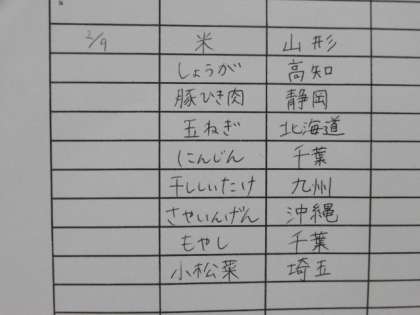 2/9 米 山形
しょうが 高知
豚ひき肉 静岡
玉ねぎ 北海道
にんじん 千葉
干ししいたけ 九州
さやいんげん 沖縄
もやし 千葉
小松菜 埼玉